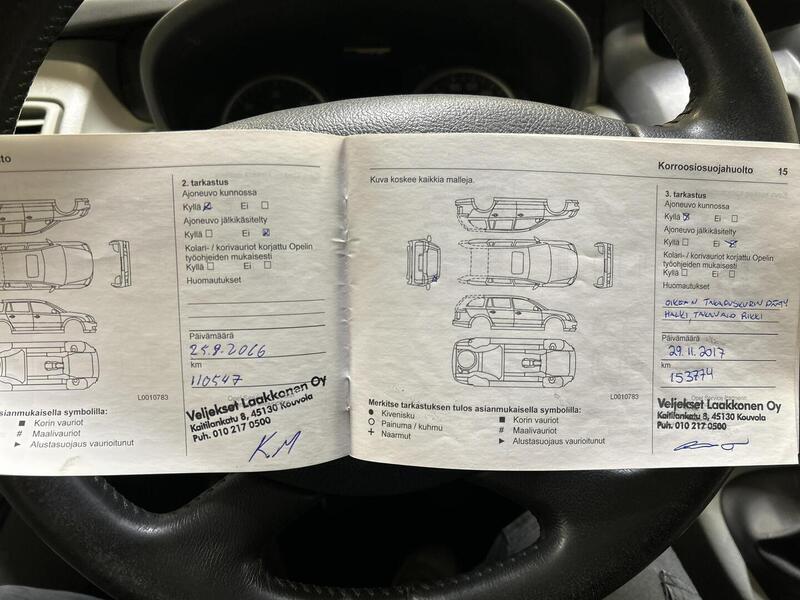 to
2. tarkastus
Ajoneuvo kunnossa
Kyllä Ei
Ajoneuvo jälkikäsitelty
Kyllä Ei
Kolari- / korivauriot korjattu Opelin
työohjeiden mukaisesti
Kyllä Ei
Huomautukset
Päivämäärä
25.9.2066
km
110547
L0010783
Veljekset Laakkonen Oy
Kaitilankatu 8, 45130 Kouvola
Puh. 010 217 0500
K.M
asianmukaisella symbolilla:
■ Korin vauriot
# Maalivauriot
► Alustasuojaus vaurioitunut
Korroosiosuojahuolto 15
Kuva koskee kaikkia malleja.
L0010783
Merkitse tarkastuksen tulos asianmukaisella symbolilla:
● Kivenisku
○ Painuma / kuhmu
+ Naarmut
■ Korin vauriot
# Maalivauriot
► Alustasuojaus vaurioitunut
3. tarkastus
Ajoneuvo kunnossa
Kyllä Ei
Ajoneuvo jälkikäsitelty
Kyllä Ei
Kolari- / korivauriot korjattu Opelin
työohjeiden mukaisesti
Kyllä Ei
Huomautukset
OIKEAN TAKAPUSKURIN PÄÄTY
HALKI, TAKAVALO RIKKI
Päivämäärä
29.11.2017
km
153774
Veljekset Laakkonen Oy
Kaitilankatu 8, 45130 Kouvola
Puh. 010 217 0500